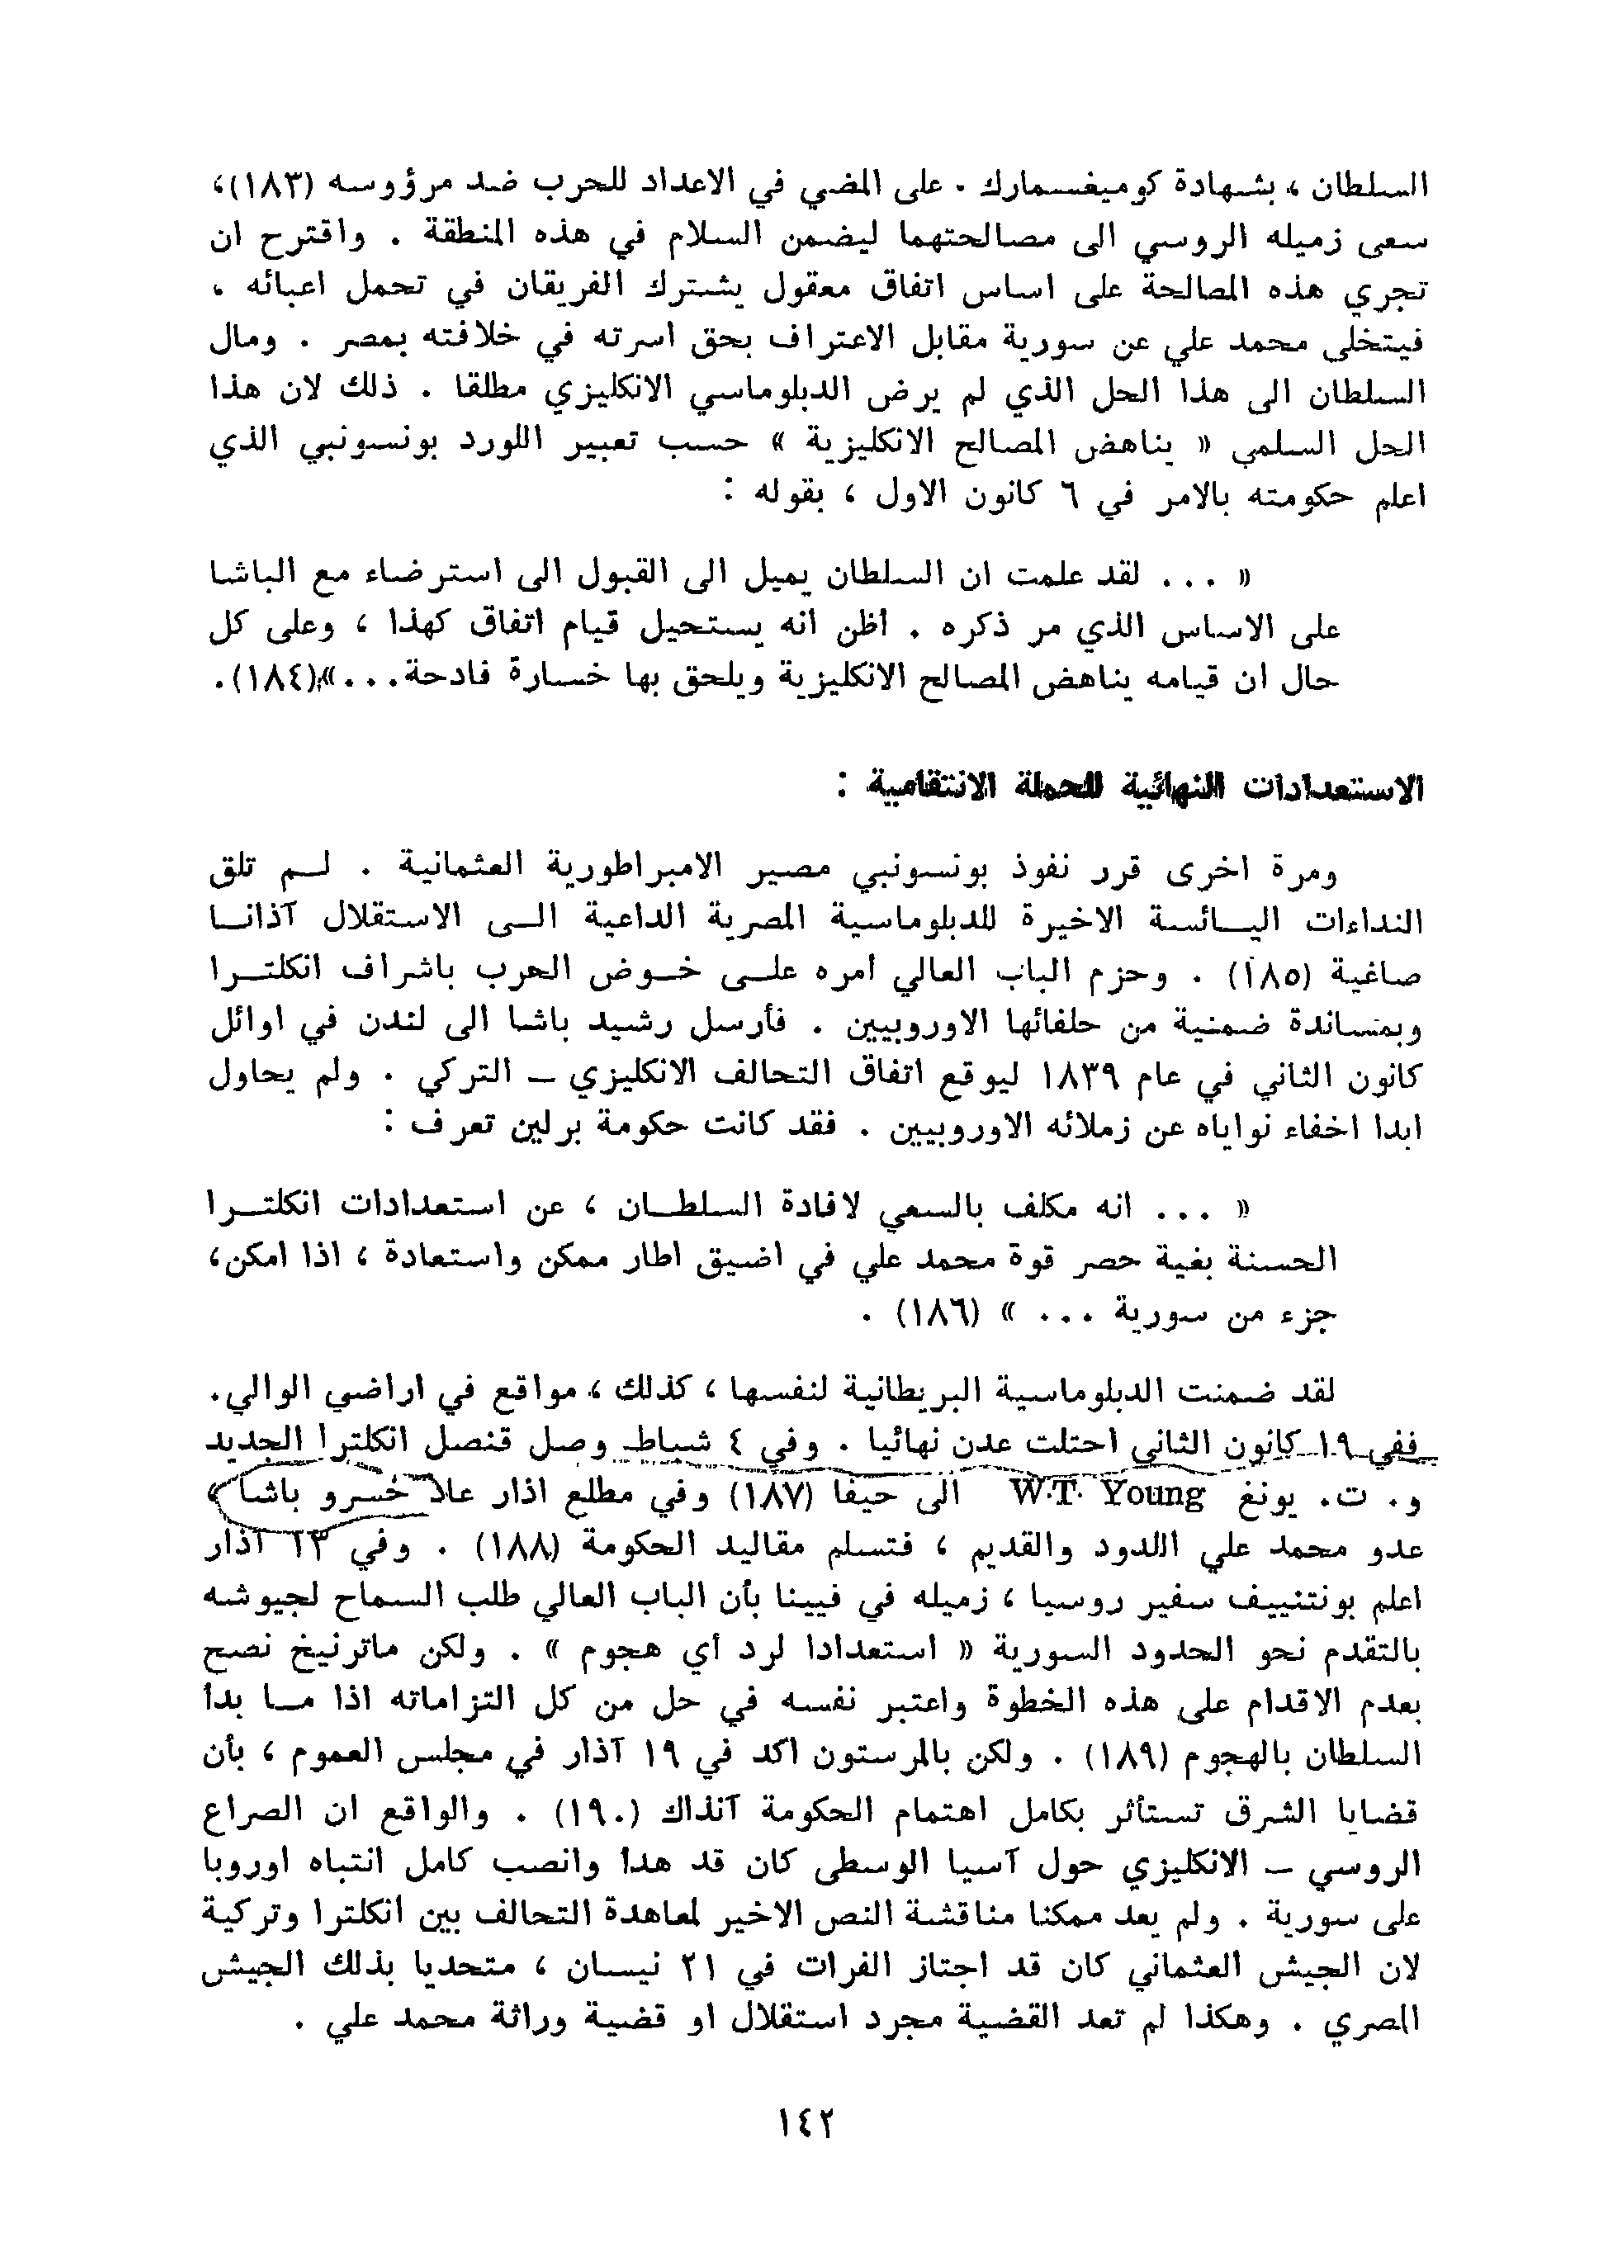 السلطان ، بشهادة كوميغسمارك . على المضي في الاعداد للحرب ضد مرؤوسه (١٨٣)،
سعى زميله الروسي الى مصالحتهما ليضمن السلام في هذه المنطقة . واقترح ان
تجري هذه المصالحة على اساس اتفاق معقول يشترك الفريقان في تحمل اعبائه ،
فيتخلى محمد علي عن سورية مقابل الاعتراف بحق اسرته في خلافته بمصر . ومال
السلطان الى هذا الحل الذي لم يرض الدبلوماسي الانكليزي مطلقا . ذلك لان هذا
الحل السلمي « يناهض المصالح الانكليزية » حسب تعبير اللورد بونسونبي الذي
اعلم حكومته بالامر في ٦ كانون الاول ، بقوله :
« ... لقد علمت ان السلطان يميل الى القبول الى استرضاء مع الباشا
على الاساس الذي مر ذكره . أظن انه يستحيل قيام اتفاق كهذا ، وعلى كل
حال ان قيامه يناهض المصالح الانكليزية ويلحق بها خسارة فادحة...»(١٨٤).
الاستعدادات النهائية للحملة الانتقامية :
ومرة اخرى قرر نفوذ بونسونبي مصير الامبراطورية العثمانية . لـم تلق
النداءات اليـائسة الاخيرة للدبلوماسية المصرية الداعية الـى الاستقلال آذانـا
صاغية (١٨٥) . وحزم الباب العالي امره علـى خـوض الحرب باشراف انكلتـرا
وبمساندة ضمنية من حلفائها الاوروبيين . فأرسل رشيد باشا الى لندن في اوائل
كانون الثاني في عام ١٨٣٩ ليوقع اتفاق التحالف الانكليزي ـ التركي . ولم يحاول
ابدا اخفاء نواياه عن زملائه الاوروبيين . فقد كانت حكومة برلين تعرف :
« ... انه مكلف بالسعي لافادة السلطـان ، عن استعدادات انكلتـرا
الحسنة بغية حصر قوة محمد علي في اضيق اطار ممكن واستعادة ، اذا امكن،
جزء من سورية ... » (١٨٦) .
لقد ضمنت الدبلوماسية البريطانية لنفسها ، كذلك ، مواقع في اراضي الوالي.
ففي ١٩ كانون الثاني احتلت عدن نهائيا . وفي ٤ شباط وصل قنصل انكلترا الجديد
و. ت. يونغ W.T. Young الى حيفا (١٨٧) وفي مطلع اذار علا خسرو باشا ،
عدو محمد علي اللدود والقديم ، فتسلم مقاليد الحكومة (١٨٨) . وفي ١٣ آذار
اعلم بونتنييف سفير روسيا ، زميله في فيينا بأن الباب العالي طلب السماح لجيوشه
بالتقدم نحو الحدود السورية « استعدادا لرد أي هجوم » . ولكن ماترنيخ نصح
بعدم الاقدام على هذه الخطوة واعتبر نفسه في حل من كل التزاماته اذا مـا بدأ
السلطان بالهجوم (١٨٩) . ولكن بالمرستون اكد في ١٩ آذار في مجلس العموم ، بأن
قضايا الشرق تستأثر بكامل اهتمام الحكومة آنذاك (١٩٠) . والواقع ان الصراع
الروسي ـ الانكليزي حول آسيا الوسطى كان قد هدأ وانصب كامل انتباه اوروبا
على سورية . ولم يعد ممكنا مناقشة النص الاخير لمعاهدة التحالف بين انكلترا وتركية
لان الجيش العثماني كان قد اجتاز الفرات في ٢١ نيسان ، متحديا بذلك الجيش
المصري . وهكذا لم تعد القضية مجرد استقلال او قضية وراثة محمد علي .
١٤٢